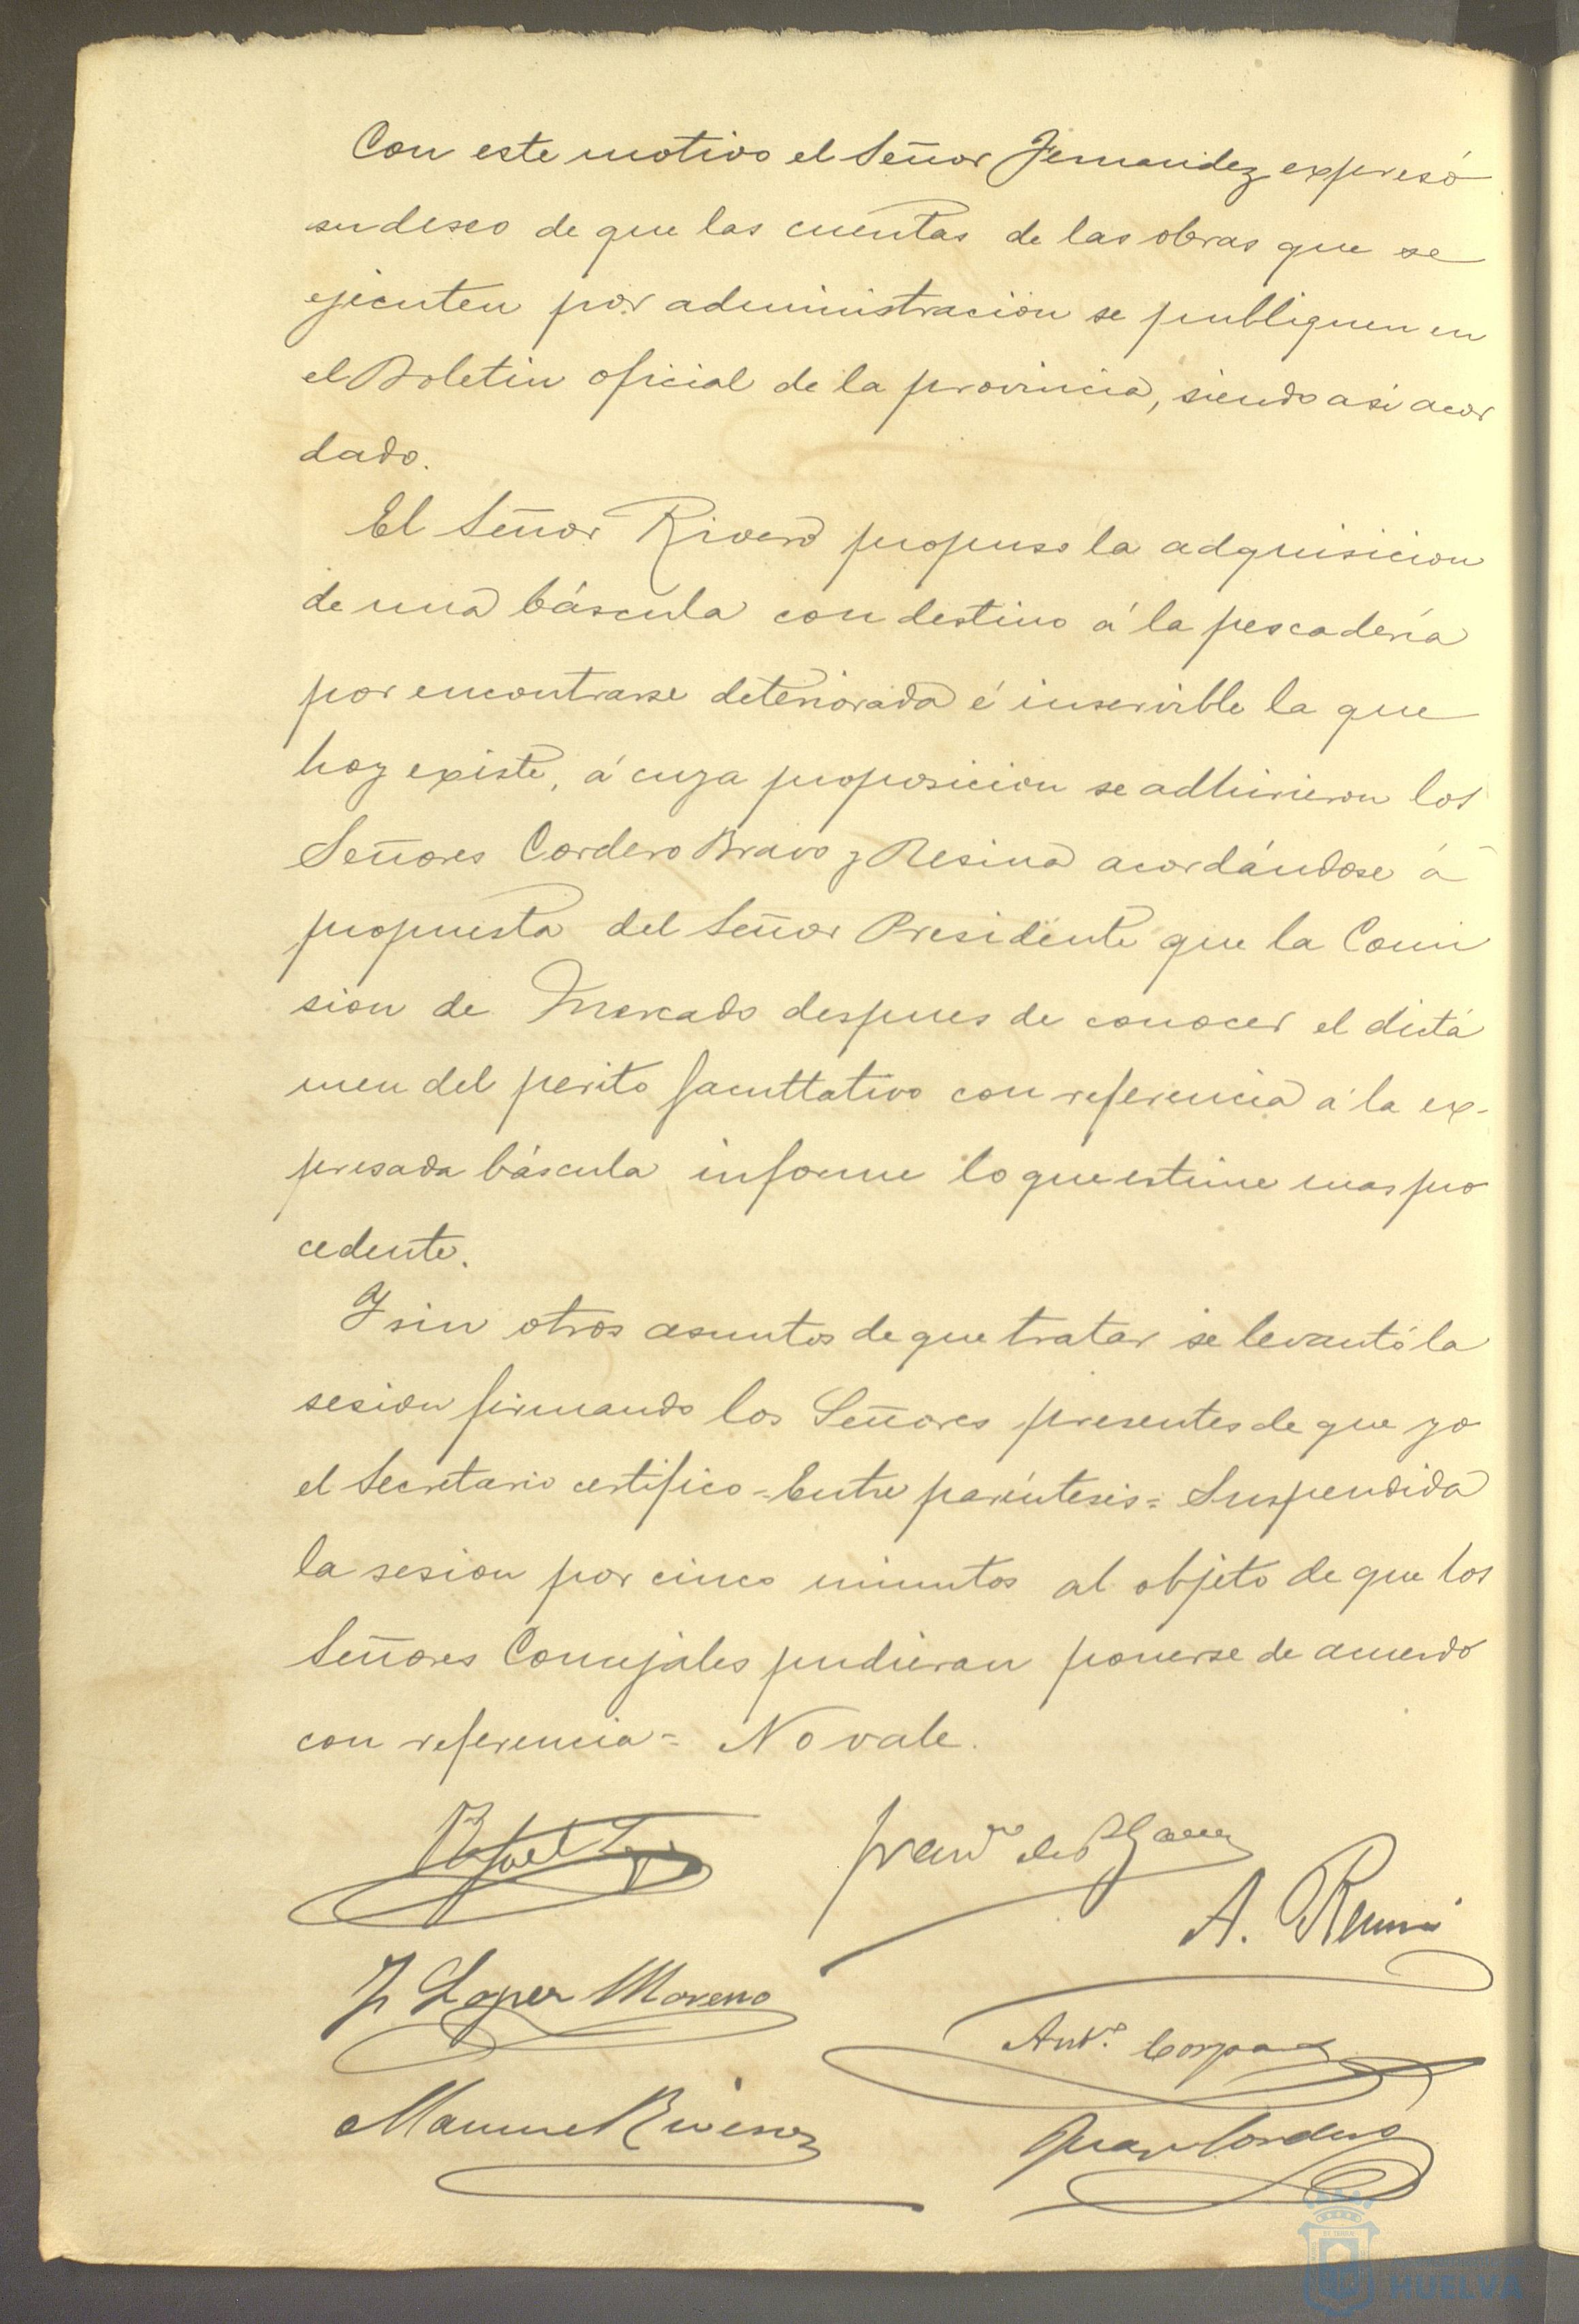 Con este motivo el Señor Fernandez expresó
su deseo de que las cuentas de las obras que se
ejecuten por administracion se publiquen en
el Boletin oficial de la provincia, siendo asi acor
dado.
El Señor Rivero propuso la adquisicion
de una báscula con destino á la pescadería
por encontrarse deteriorada é inservible la que
hoy existe, á cuya proposicion se adhirieron los
Señores Cordero Bravo y Resina acordándose á
propuesta del Señor Presidente que la Comi
sion de Mercado despues de conocer el dictá
men del perito facultativo con referencia á la ex-
presada báscula informe lo que estime mas pro
cedente.
Y sin otros asuntos de que tratar se levantó la
sesion firmando los Señores presentes de que yo
el Secretario certifico = Entre paréntesis = Suspendida
la sesion por cinco minutos al objeto de que los
Señores Concejales pudieran ponerse de acuerdo
con referencia = No vale.
Rafael
Fran.co de P.
A.
J Lopez Moreno
Ant.o
Manuel Rivero
Juan Cordero
HUELVA